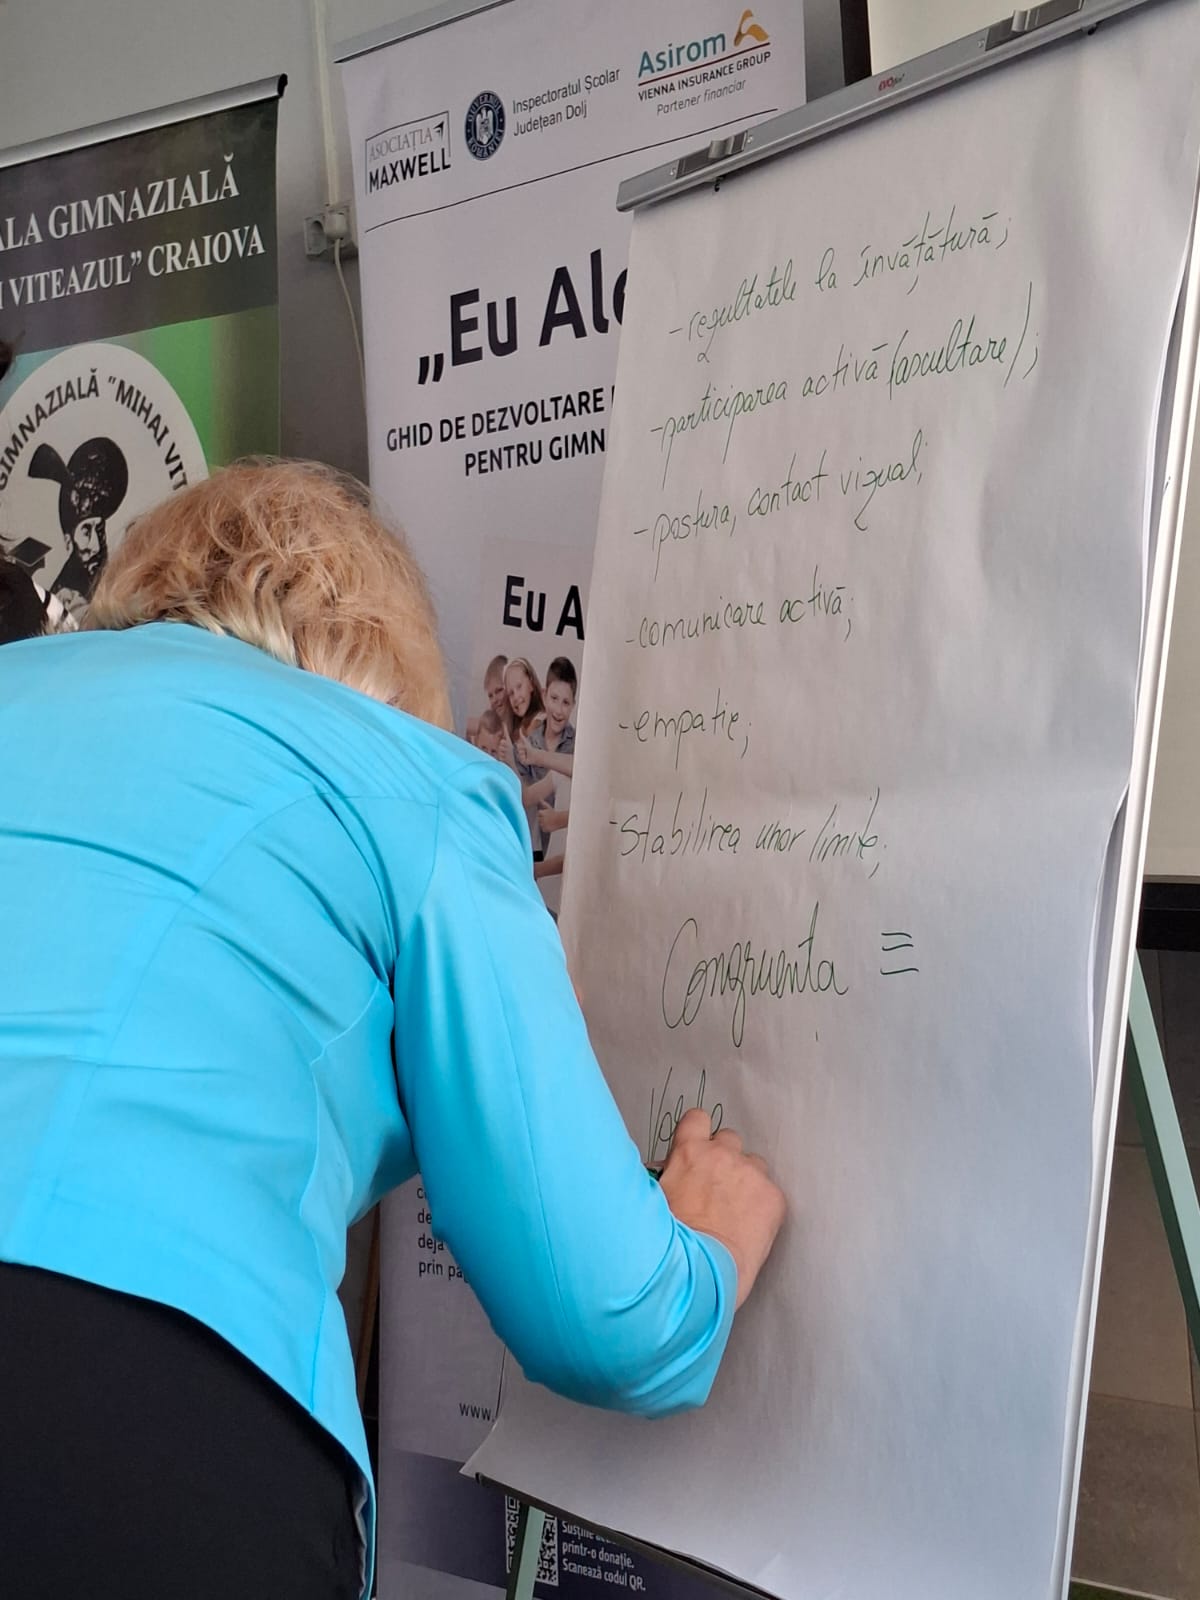 ALA GIMNAZIALĂ
I VITEAZUL” CRAIOVA
GIMNAZIALĂ "MIHAI VIT
ASOCIAȚIA
MAXWELL
GUVERNUL ROMÂNIEI
Inspectoratul Școlar
Județean Dolj
Asirom
VIENNA INSURANCE GROUP
Partener financiar
„Eu Ale
GHID DE DEZVOLTARE
PENTRU GIMN
Eu A
de
deja
prin pa
www.
Susține
printr-o donație.
Scanează codul QR.
EVOflip
- rezultatele la învățătură;
- participarea activă (ascultare);
- postura, contact vizual;
- comunicare activă;
- empatie;
- stabilirea unor limite;
Congruența =